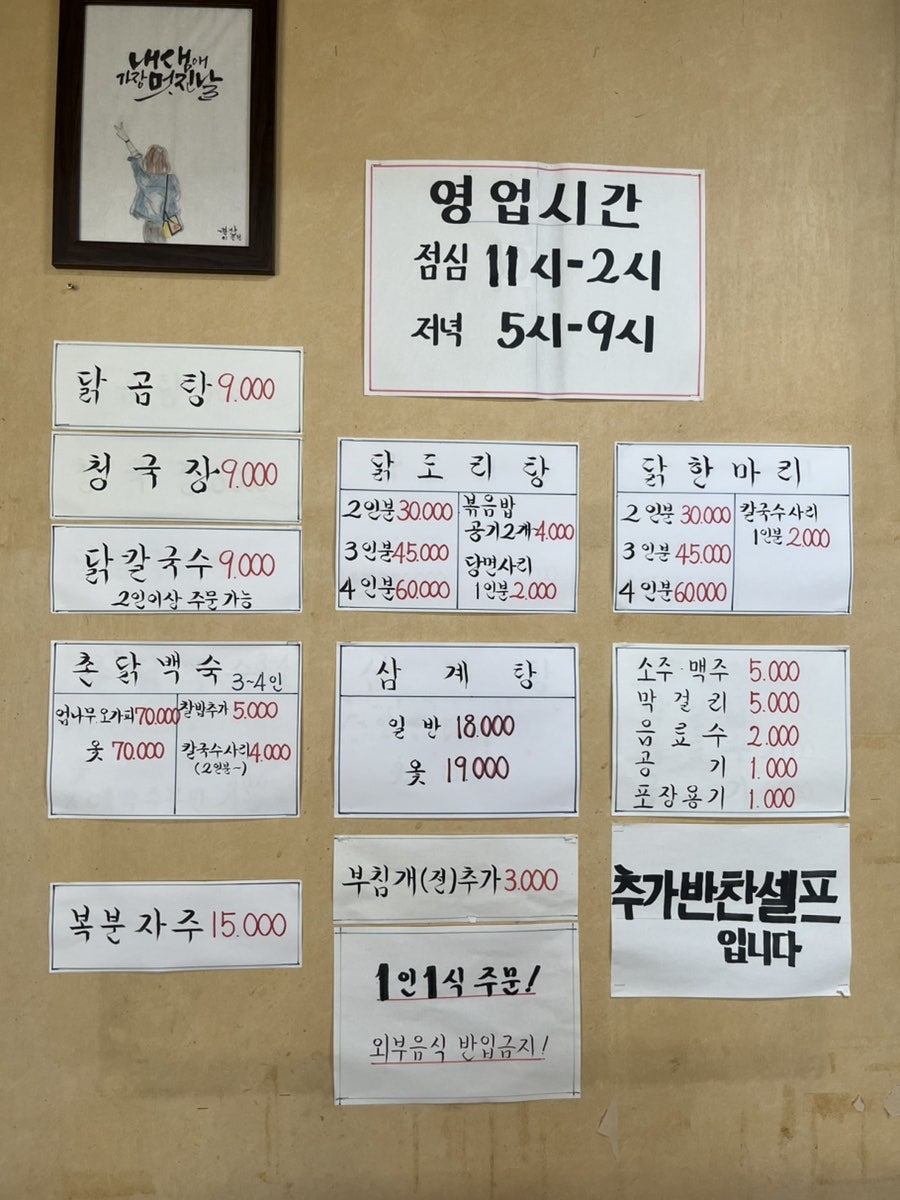 내생애
가장 멋진날
영업시간
점심 11시-2시
저녁 5시-9시
닭곰탕 9.000
청국장 9.000
닭칼국수 9.000
2인이상 주문가능
닭도리탕
2인분 30.000
3인분 45.000
4인분 60.000
볶음밥
공기2개 4.000
당면사리
1인분 2.000
닭한마리
2인분 30.000
3인분 45.000
4인분 60.000
칼국수사리
1인분 2.000
촌닭백숙 3~4인
엄나무.오가피 70.000
옻 70.000
찰밥추가 5.000
칼국수사리 4.000
(2인분~)
삼계탕
일반 18.000
옻 19.000
소주·맥주 5.000
막걸리 5.000
음료수 2.000
공기 1.000
포장용기 1.000
복분자주 15.000
부침개(전)추가 3.000
1인1식 주문!
외부음식 반입금지!
추가반찬셀프
입니다